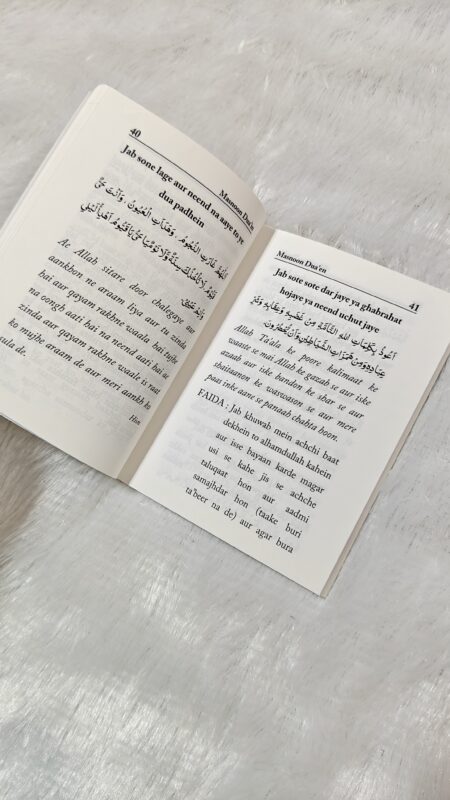 40
Masnoon Dua'en
Jab sone lage aur neend na aaye to ye
dua padhein
اَللّٰهُمَّ غَارَتِ النُّجُوْمُ وَهَدَاَتِ الْعُيُوْنُ وَاَنْتَ حَيٌّ
قَيُّوْمٌ لَا تَاْخُذُكَ سِنَةٌ وَّلَا نَوْمٌ يَا حَيُّ يَا قَيُّوْمُ اَهْدِئْ لَيْلِيْ
وَاَنِمْ عَيْنِيْ
Ae Allah sitare door chalegaye aur
aankhon ne araam liya aur tu zinda
hai aur qayam rakhne waala hai tujhe
na oongh aati hai na neend aati hai ae
zinda aur qayam rakhne waale is raat
ko mujhe araam de aur meri aankh ko
sula de.
Hisn
Masnoon Dua'en
41
Jab sote sote dar jaye ya ghabrahat
hojaye ya neend uchut jaye
اَعُوْذُ بِكَلِمَاتِ اللهِ التَّامَّةِ مِنْ غَضَبِهٖ وَعِقَابِهٖ وَشَرِّ
عِبَادِهٖ وَمِنْ هَمَزَاتِ الشَّيَاطِيْنِ وَاَنْ يَّحْضُرُوْنِ
Allah Ta'ala ke poore kalimaat ke
waaste se mai Allah ke gazab se aur iske
azaab aur iske bandon ke shar se aur
shaitaanon ke waswason se aur mere
paas inke aane se panaah chahta hoon.
FAIDA : Jab khuwab mein achchi baat
dekhein to alhamdallah kahein
aur isse bayaan karde magar
usi se kahe jis se achche
taluqaat hon aur aadmi
samajhdar hon (taake buri
ta'beer na de) aur agar bura